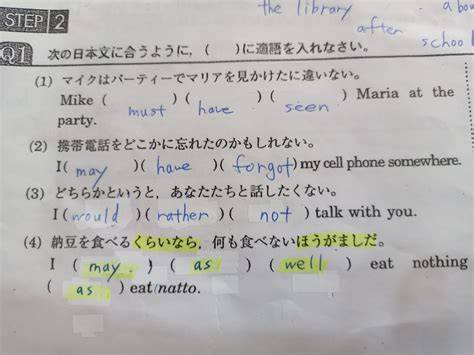 the library abou
after school
STEP 2
Q1 次の日本文に合うように，( )に適語を入れなさい。
(1) マイクはパーティーでマリアを見かけたに違いない。
Mike ( must )( have )( seen ) Maria at the
party.
(2) 携帯電話をどこかに忘れたのかもしれない。
I( may )( have )( forgot ) my cell phone somewhere.
(3) どちらかというと，あなたたちと話したくない。
I( would )( rather )( not ) talk with you.
(4) 納豆を食べるくらいなら，何も食べないほうがましだ。
I ( may. )( as )( well ) eat nothing
( as ) eat natto.